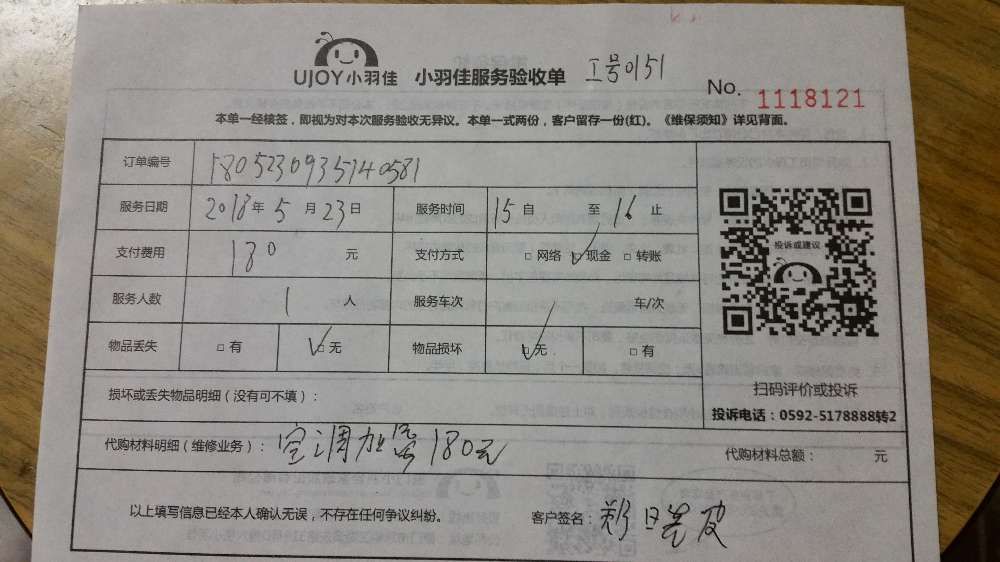 UJOY小羽佳 小羽佳服务验收单 工号0151
No. 1118121
本单一经核签，即视为对本次服务验收无异议。本单一式两份，客户留存一份(红)。《维保须知》详见背面。
订单编号 1805230935140581
服务日期 2018年 5 月 23日 服务时间 15 自 至 16 止
支付费用 180 元 支付方式 □网络 ☑现金 □转账
服务人数 1 人 服务车次 车/次
物品丢失 □有 ☑无 物品损坏 ☑无 □有
投诉或建议
扫码评价或投诉
投诉电话：0592-5178888转2
损坏或丢失物品明细（没有可不填）：
代购材料明细（维修业务）：空调加 180元 代购材料总额： 元
以上填写信息已经本人确认无误，不存在任何争议纠纷。 客户签名：郑